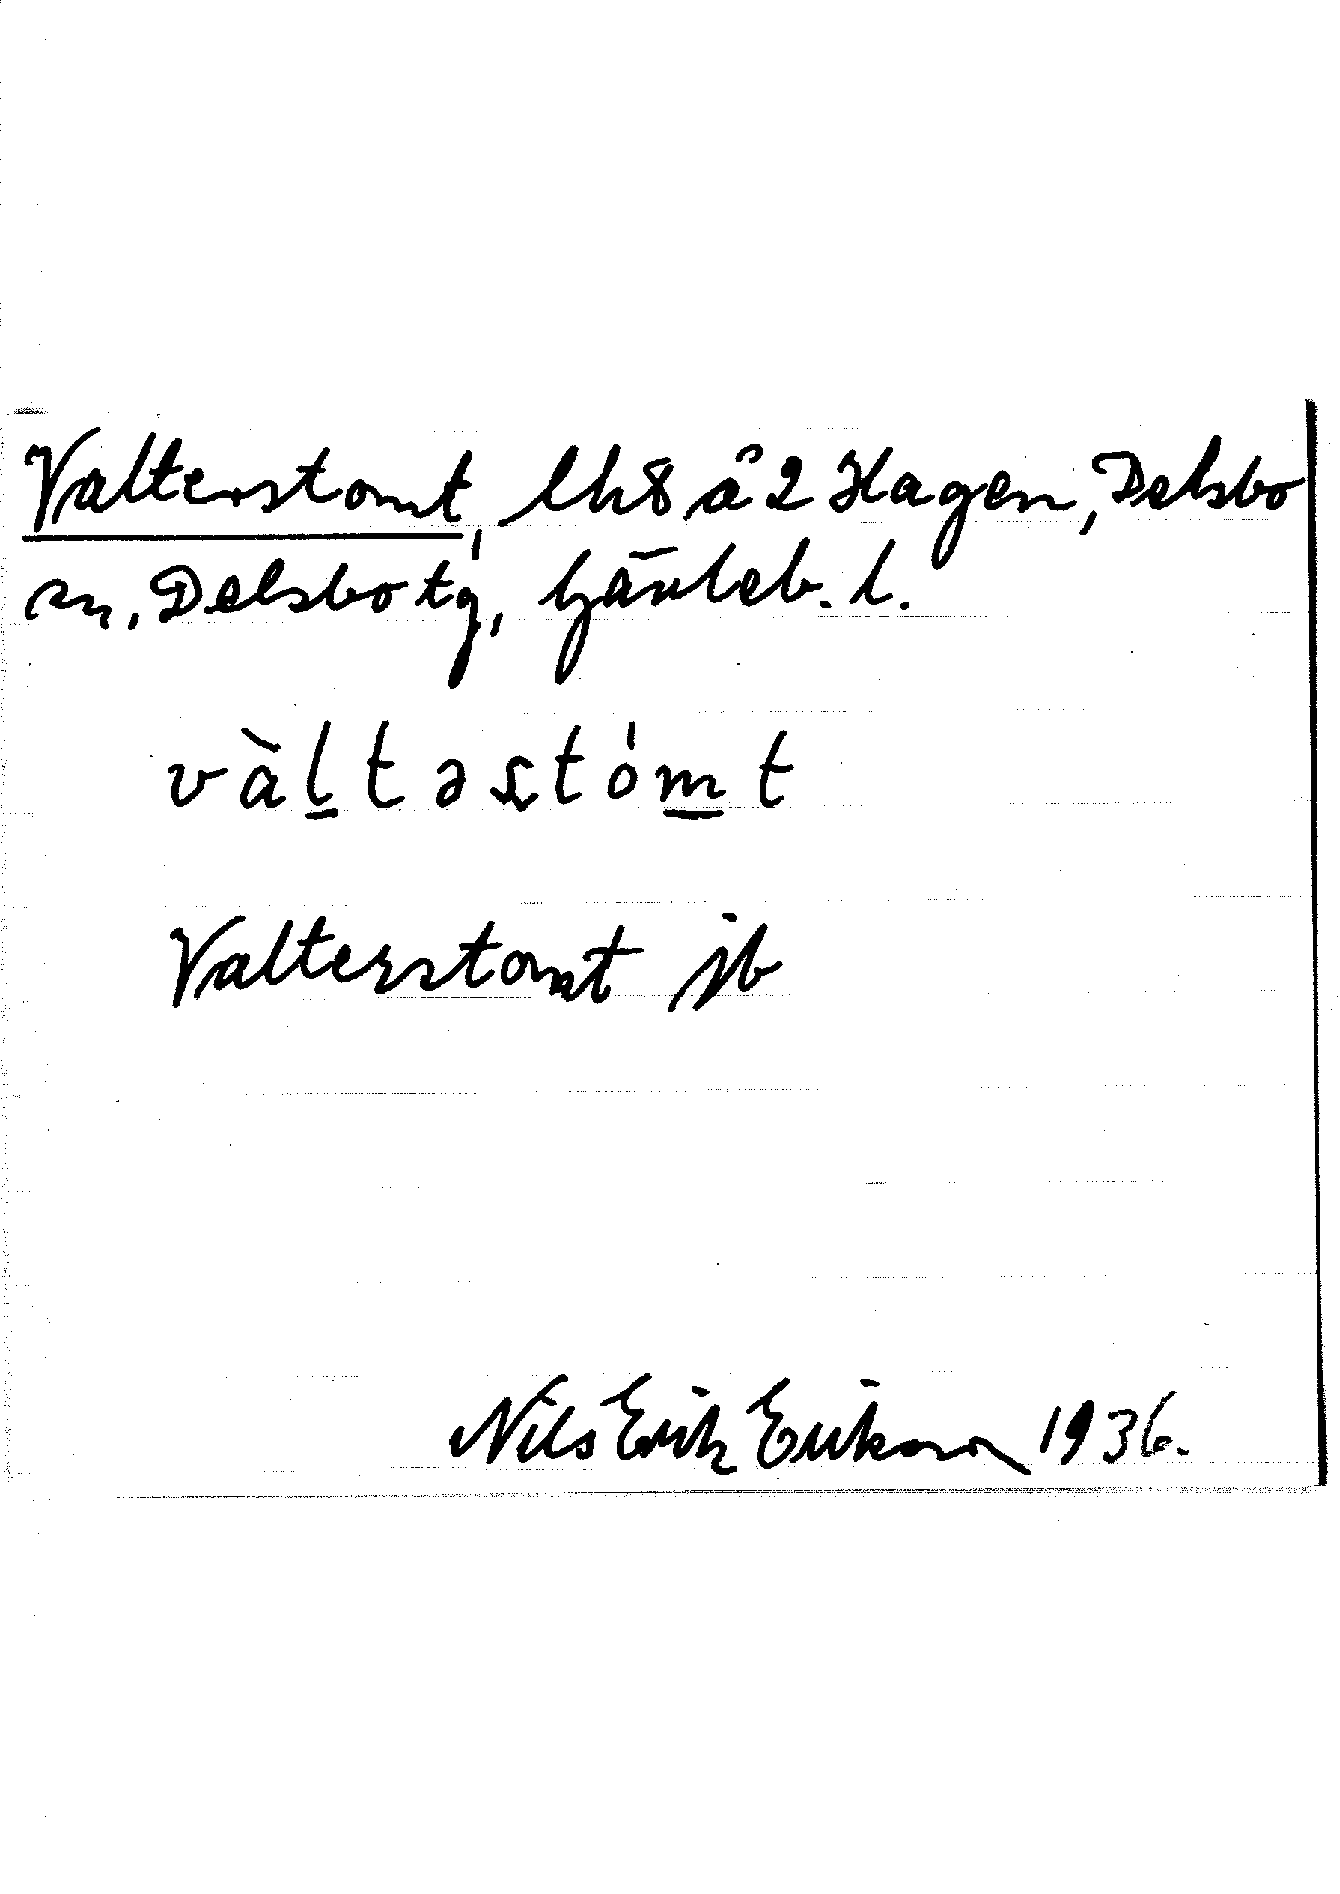 Valterstomt, lh 8 å 2 Hagen, Delsbo
sn, Delsbo tg, Gävleb. l.
vàl̲təstóm̲t
Valterstomt jb
Nils Erik Erikson 1936.